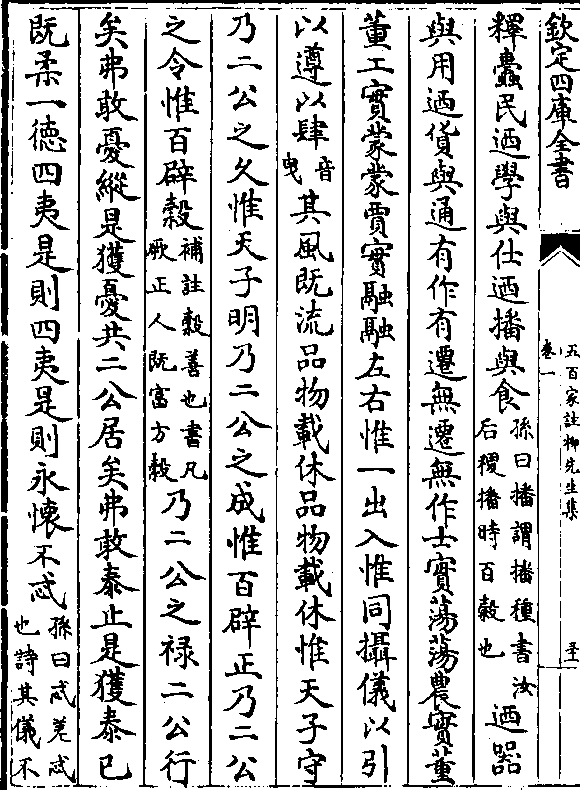 欽定四庫全書
五百家註柳先生集
卷一
釋蠧民迺學與仕迺播與食孫曰播謂播種書汝后稷播時百穀也迺器
與用迺貨與通有作有遷無遷無作士實蕩蕩農實董
董工實蒙蒙賈實融融左右惟一出入惟同攝儀以引
以遵以肆音曳其風既流品物載休品物載休惟天子守
乃二公之久惟天子明乃二公之成惟百辟正乃二公
之令惟百辟穀補註穀善也書凡厥正人既富方穀乃二公之禄二公行
矣弗敢憂縱是獲憂共二公居矣弗敢泰止是獲泰已
既柔一德四夷是則四夷是則永懷不忒孫曰忒差忒也詩其儀不